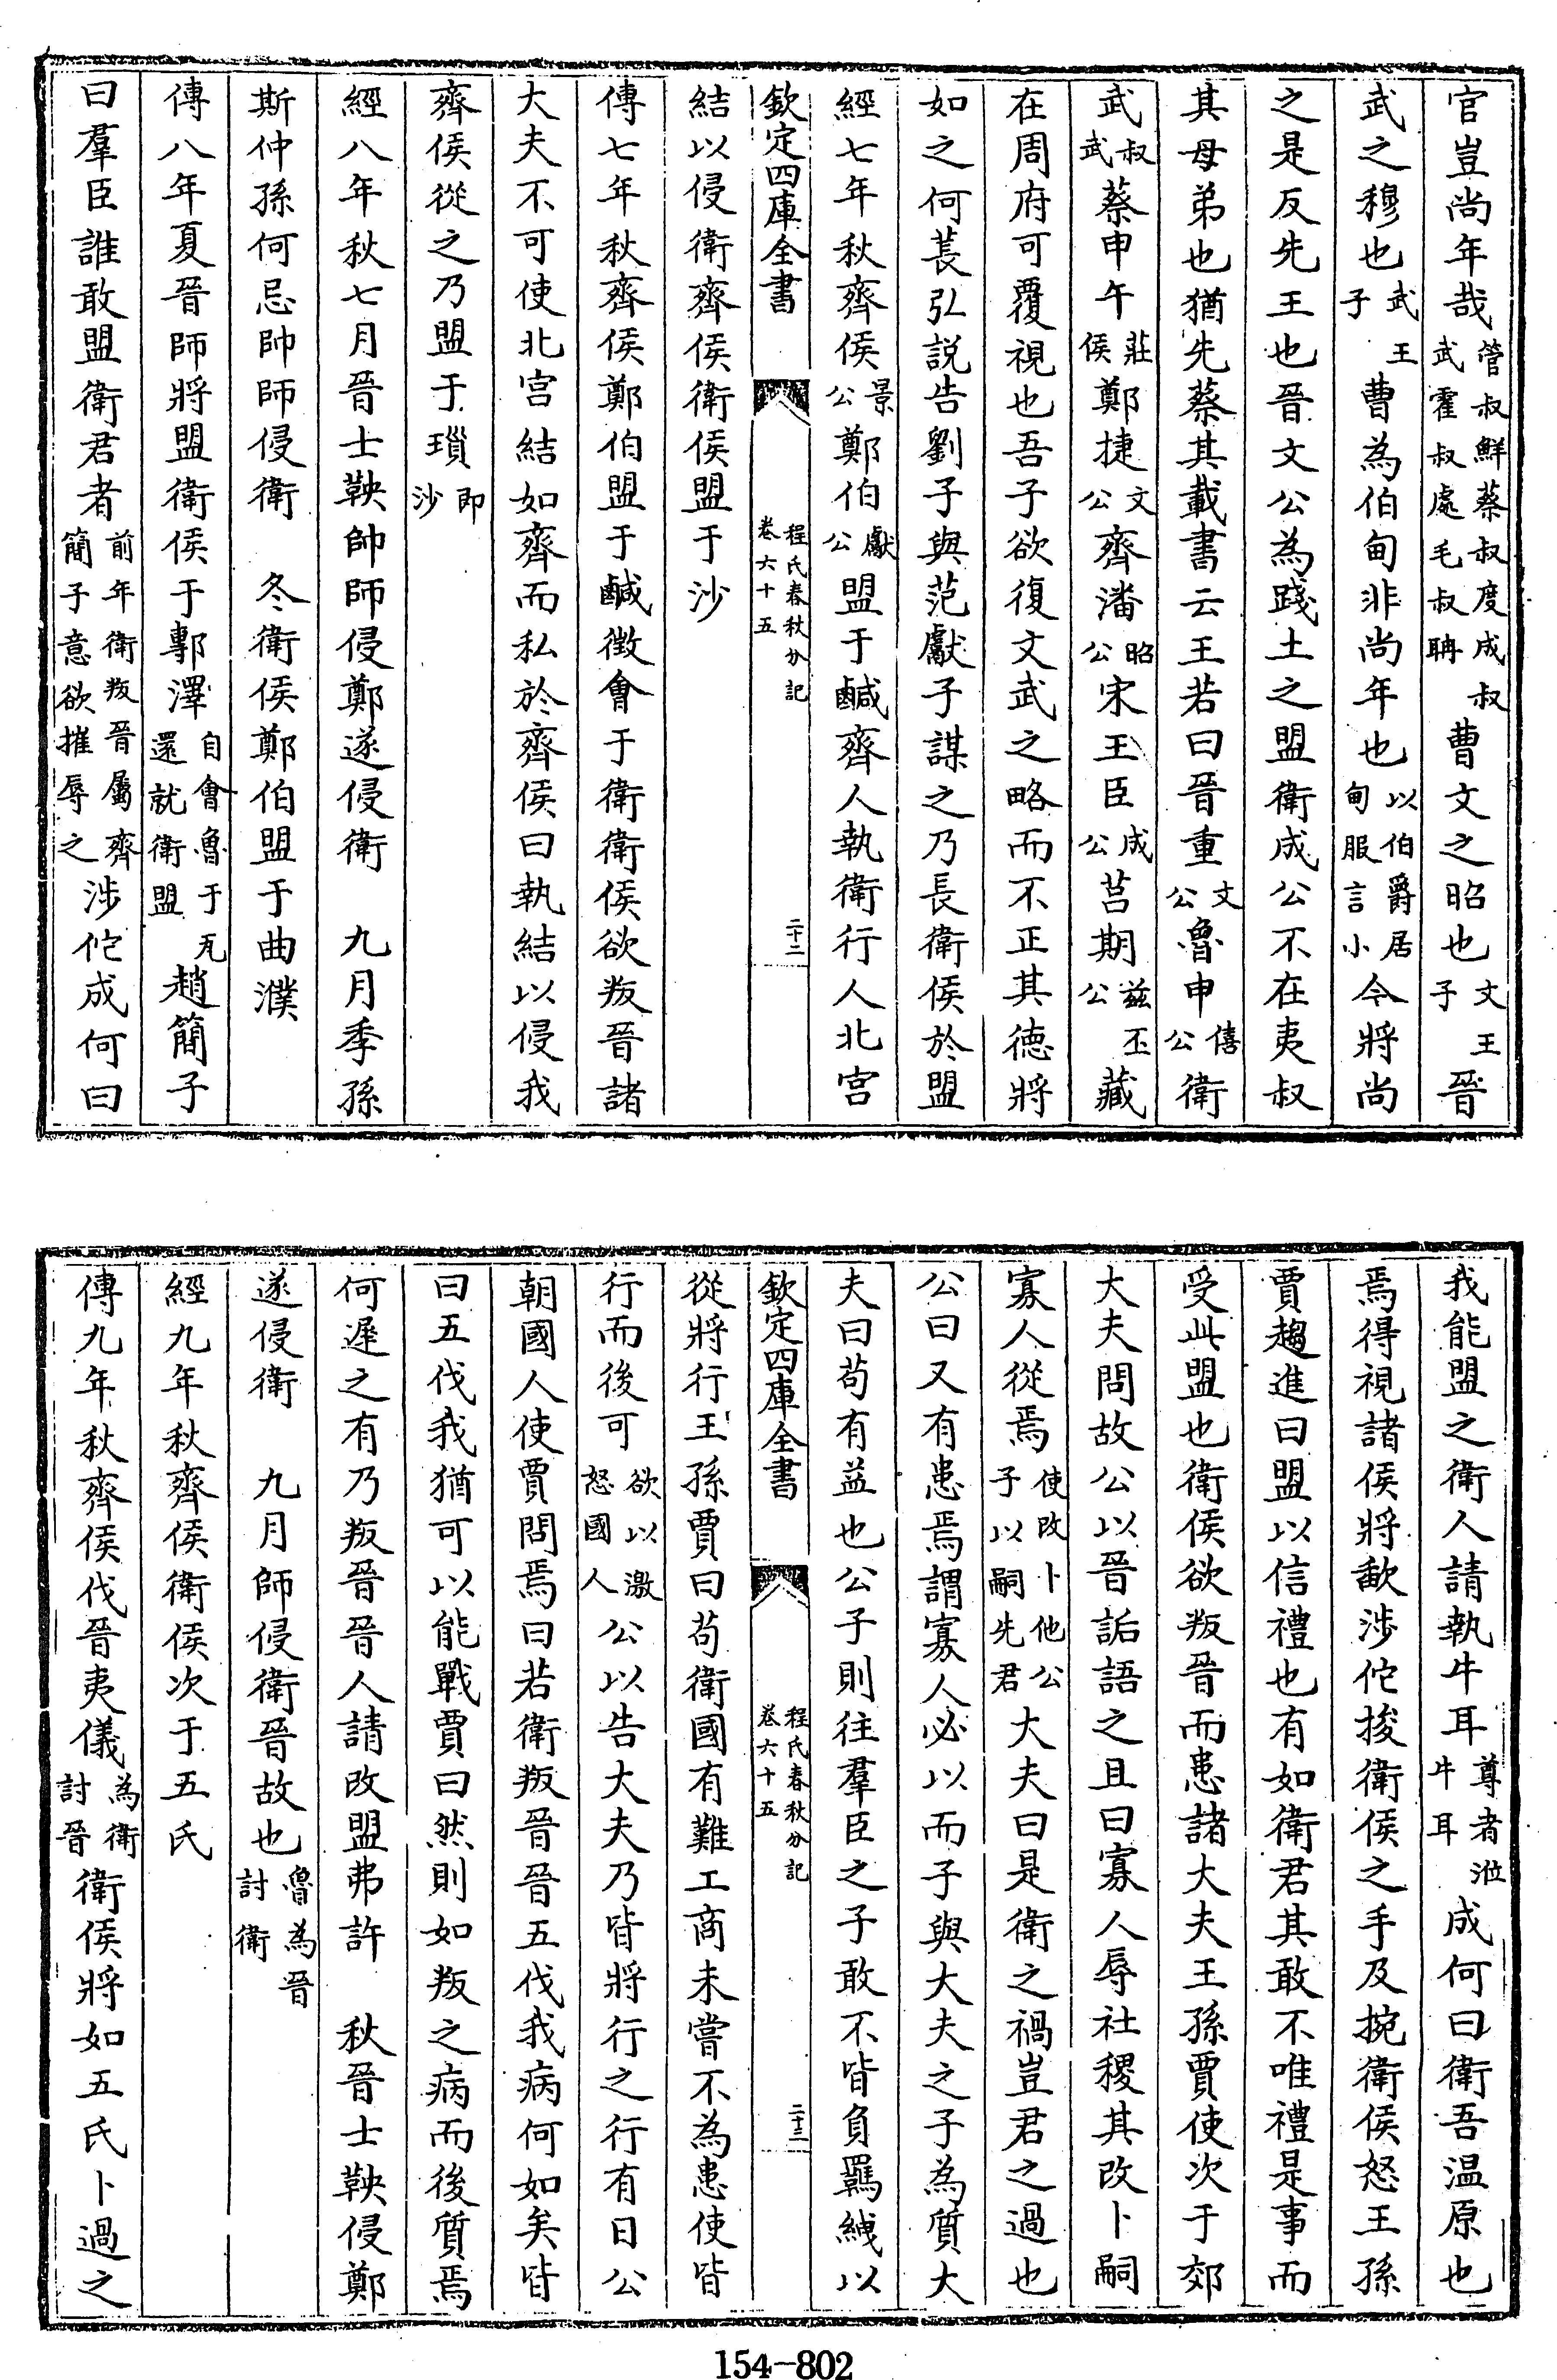 官豈尚年哉管叔鮮蔡叔度成叔武霍叔處毛叔聃曹文之昭也文王子晉
武之穆也武王子曹為伯甸非尚年也以伯爵居甸服言小今將尚
之是反先王也晉文公為踐土之盟衛成公不在夷叔
其母弟也猶先蔡其載書云王若曰晉重文公魯申僖公衛
武叔武蔡申午莊侯鄭捷文公齊潘昭公宋王臣成公莒期茲丕公藏
在周府可覆視也吾子欲復文武之略而不正其德將
如之何萇弘說告劉子與范獻子謀之乃長衛侯於盟
經七年秋齊侯景公鄭伯獻公盟于鹹齊人執衛行人北宮
欽定四庫全書 程氏春秋分記卷六十五 二十二
結以侵衛齊侯衛侯盟于沙
傳七年秋齊侯鄭伯盟于鹹徵會于衛衛侯欲叛晉諸
大夫不可使北宮結如齊而私於齊侯曰執結以侵我
齊侯從之乃盟于瑣即沙
經八年秋七月晉士鞅帥師侵鄭遂侵衛 九月季孫
斯仲孫何忌帥師侵衛 冬衛侯鄭伯盟于曲濮
傳八年夏晉師將盟衛侯于鄟澤自會魯于瓦還就衛盟趙簡子
曰羣臣誰敢盟衛君者前年衛叛晉屬齊簡子意欲摧辱之涉佗成何曰
我能盟之衛人請執牛耳尊者涖牛耳成何曰衛吾温原也
焉得視諸侯將歃涉佗捘衛侯之手及捥衛侯怒王孫
賈趨進曰盟以信禮也有如衛君其敢不唯禮是事而
受此盟也衛侯欲叛晉而患諸大夫王孫賈使次于郊
大夫問故公以晉詬語之且曰寡人辱社稷其改卜嗣
寡人從焉使改卜他公子以嗣先君大夫曰是衛之禍豈君之過也
公曰又有患焉謂寡人必以而子與大夫之子為質大
夫曰苟有益也公子則往羣臣之子敢不皆負羈絏以
欽定四庫全書 程氏春秋分記卷六十五 二十三
從將行王孫賈曰苟衛國有難工商未嘗不為患使皆
行而後可欲以激怒國人公以告大夫乃皆將行之行有日公
朝國人使賈問焉曰若衛叛晉晉五伐我病何如矣皆
曰五伐我猶可以能戰賈曰然則如叛之病而後質焉
何遲之有乃叛晉晉人請改盟弗許 秋晉士鞅侵鄭
遂侵衛 九月師侵衛晉故也魯為晉討衛
經九年秋齊侯衛侯次于五氏
傳九年秋齊侯伐晉夷儀為衛討晉衛侯將如五氏卜過之
154-802